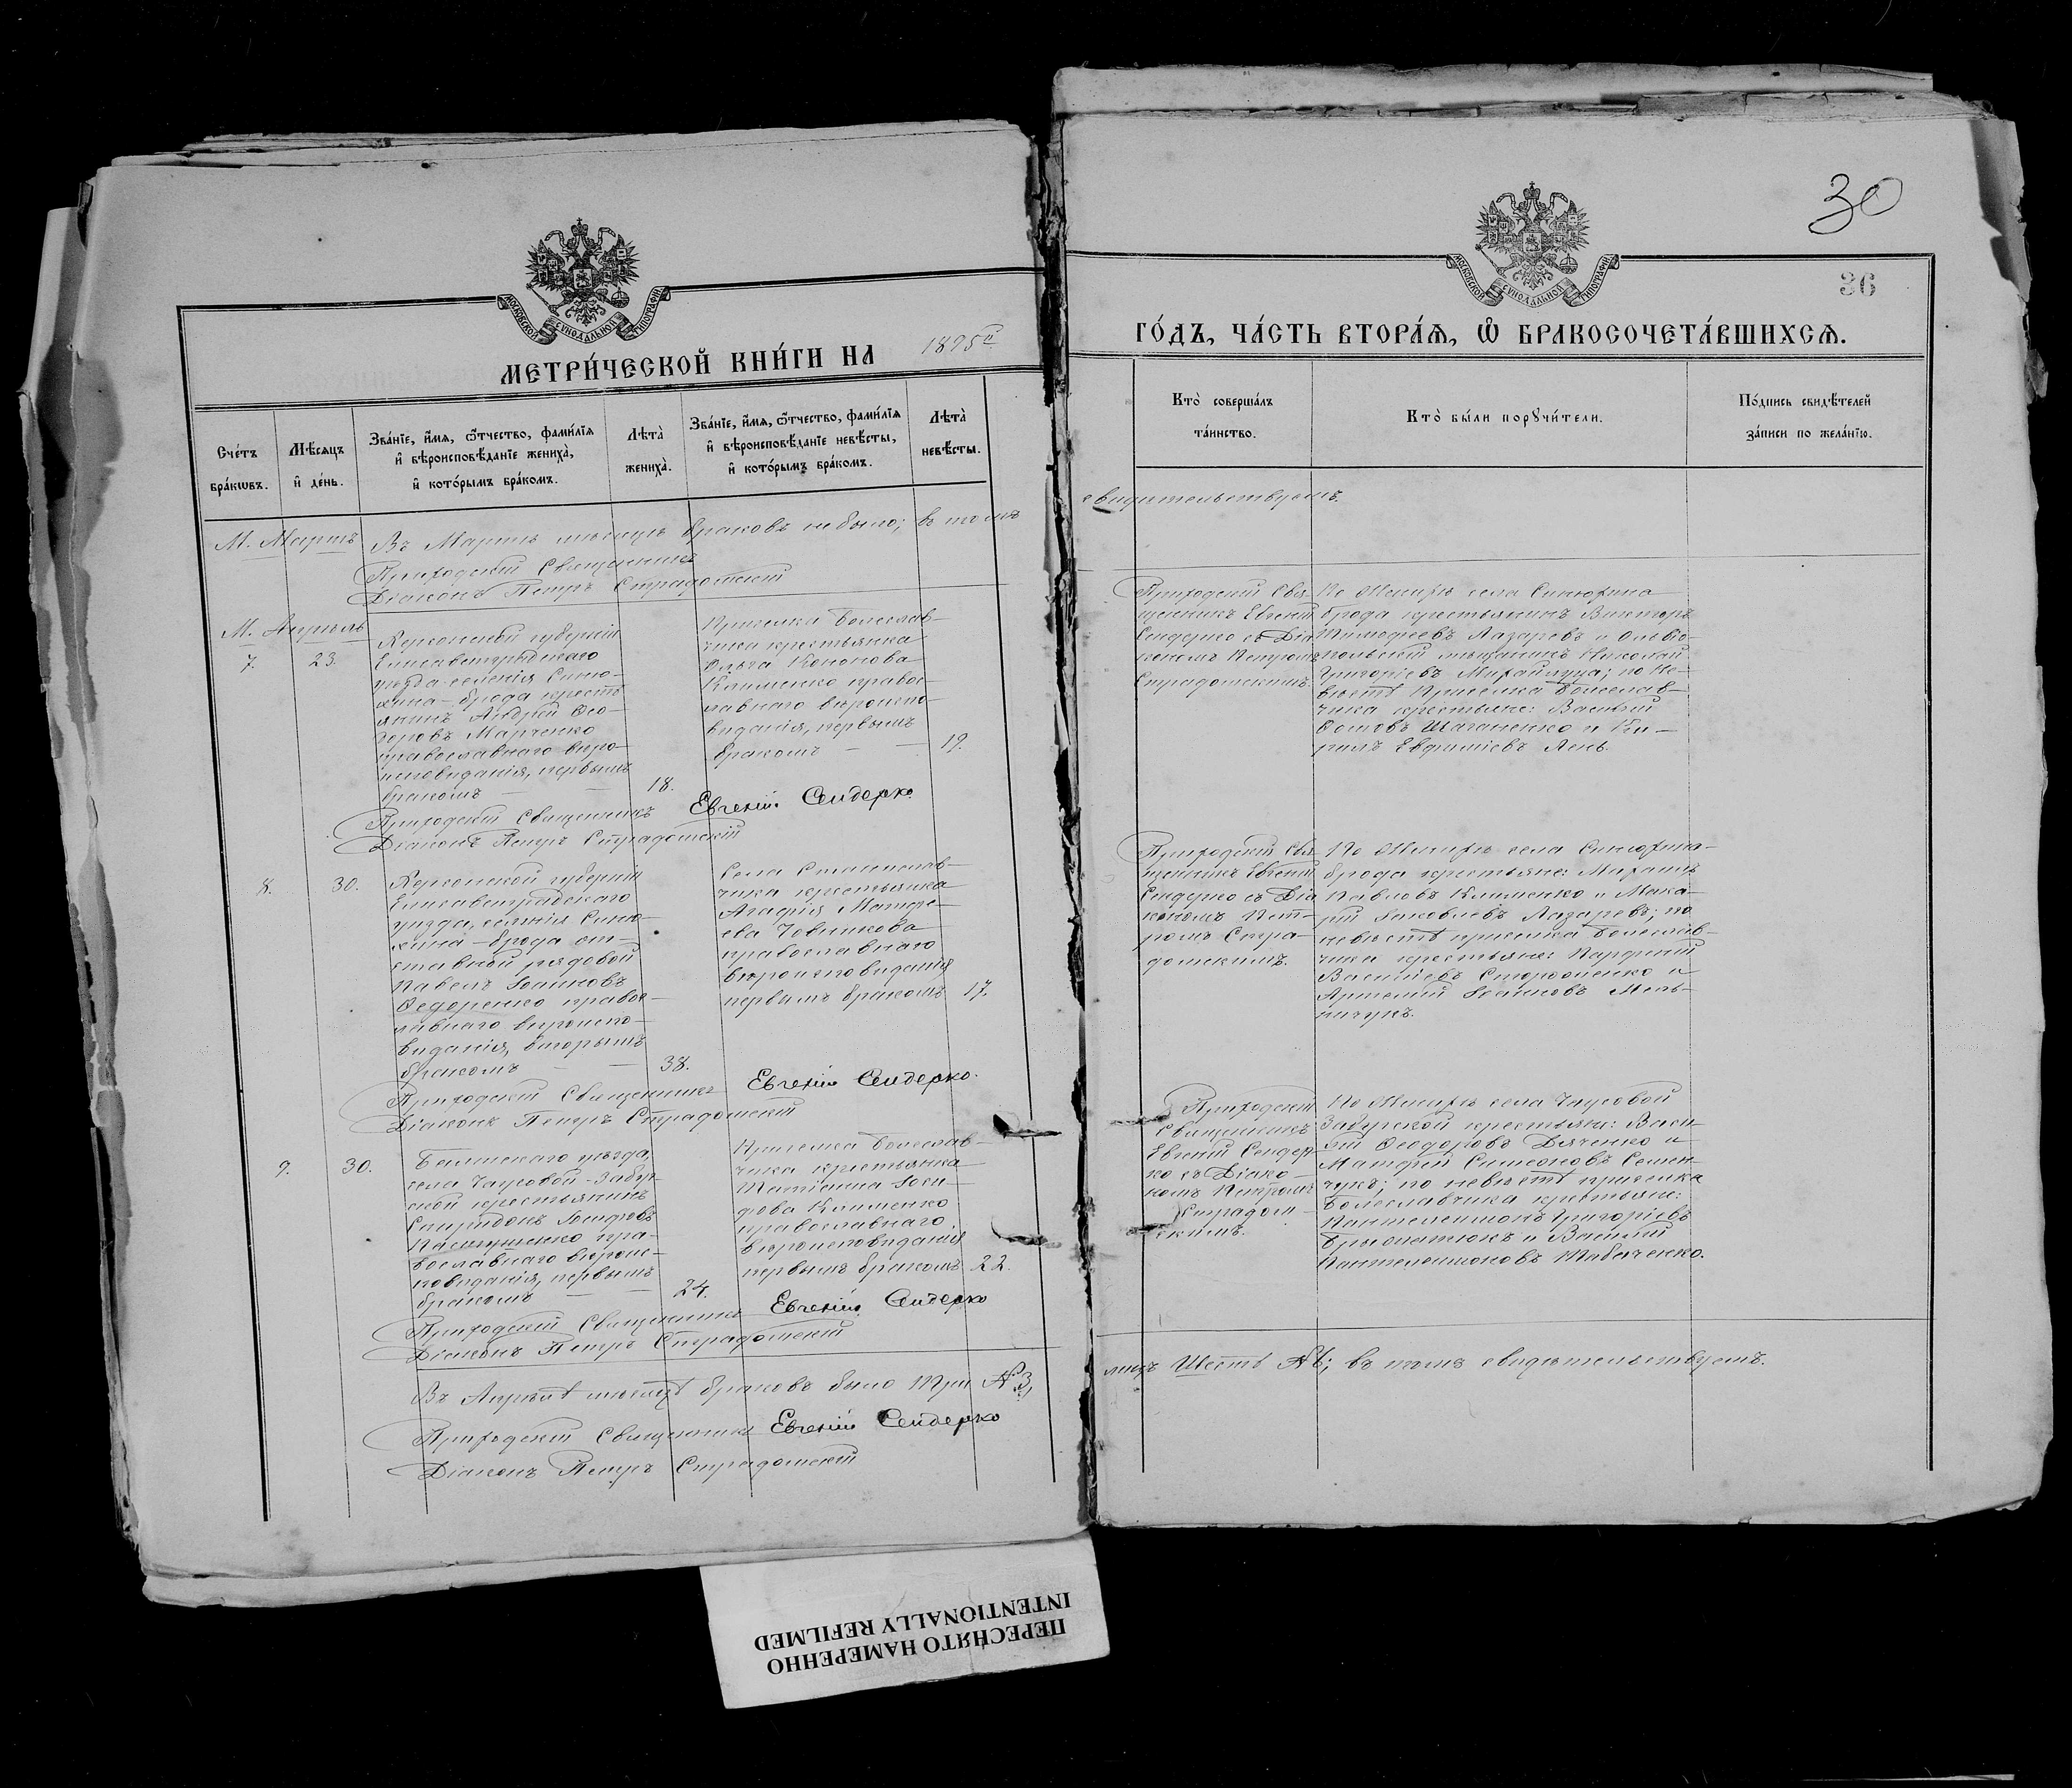 30
36
МОСКОВСКОЙ СѴНОДАЛЬНОЙ ТИПОГРАФІИ
МОСКОВСКОЙ СѴНОДАЛЬНОЙ ТИПОГРАФІИ
МЕТРИ́ЧЕСКОЙ КНИ́ГИ НА 1895й
ГО́ДЪ, ЧА́СТЬ ВТОРА́Ѧ, Ѡ҆ БРАКОСОЧЕТА́ВШИХСѦ.
Сче́тъ
бра́кѡвъ.
Мѣ́сѧцъ
и҆ де́нь.
Зва́нїе, и҆́мѧ, ѻ҆́тчество, фами́лїѧ
и҆ вѣроисповѣ́данїе жениха̀,
и҆ кото́рымъ бра́комъ.
Лѣта̀
жениха̀.
Зва́нїе, и҆́мѧ, ѻ҆́тчество, фами́лїѧ
и҆ вѣроисповѣ́данїе невѣ́сты,
и҆ кото́рымъ бра́комъ.
Лѣта̀
невѣ́сты.
Кто̀ соверша́лъ
та́инство.
Кто̀ бы́ли порꙋчи́тели.
По́дпись свидѣ́телей
за́писи по жела́нїю.
М. Мартъ
Въ Мартѣ мѣсяцѣ браковъ не было; въ томъ
свидѣтельствуемъ.
Приходскій Священникъ
Діаконъ Петръ Страдомскій
М. Апрѣль
7.
23.
Херсонской губерніи
Елисаветградскаго
уѣзда селенія Синю-
хина-брода кресть
янинъ Андрей Ѳео-
доровъ Марченко
православнаго вѣро-
исповѣданія, первымъ
бракомъ
18.
Приселка Болеслав-
чика крестьянка
Ольга Кононова
Клименко правос-
лавнаго вѣроиспо-
вѣданія, первымъ
бракомъ
19.
Приходскій Свя-
щенникъ Евгеній
Сендерко съ Діа
кономъ Петромъ
Страдомскимъ.
По Женихѣ села Синюхина
брода крестьянинъ Викторъ
Тимоѳеевъ Лазаревъ и Ольвіо-
польскій мѣщанинъ Николай
Григорьевъ Михайлуца; по Не-
вѣстѣ Приселка Болеслав-
чика крестьяне: Василій
Ѳомовъ Шаганенко и Ки-
рилъ Евфиміевъ Лень.
Приходскій Священникъ Евгеній Сендерко
Діаконъ Петръ Страдомскій
8.
30.
Херсонской губерніи
Елисаветградскаго
уѣзда, селенія Синю-
хина-брода от-
ставной рядовой
Павелъ Іоанновъ
Ѳедоренко правос-
лавнаго вѣроиспо-
вѣданія, вторымъ
бракомъ
38.
Села Станислав-
чика крестьянка
Агафія Матѳе-
ева Човникова
православнаго
вѣроисповѣданія
первымъ бракомъ
17.
Приходскій Свя-
щенникъ Евгеній
Сендерко съ Діа
кономъ Пет-
ромъ Стра-
домскимъ.
По Женихѣ села Синюхина-
брода крестьяне: Михаилъ
Павловъ Клименко и Мака-
рій Іаковлевъ Лазаревъ; по
невѣстѣ приселка Болеслав-
чика крестьяне: Парфеній
Васильевъ Сторożенко и
Артемій Іоанновъ Мель-
ничукъ.
Приходскій Священникъ Евгеній Сендерко.
Діаконъ Петръ Страдомскій
9.
30.
Балтскаго уѣзда,
села Чаусовой-Забуг-
ской крестьянинъ
Спиридонъ Іосифовъ
православнаго вѣроис-
повѣданія, первымъ
бракомъ
24.
Приселка Болеслав-
чика крестьянка
Татіанна Іоси-
фова Клименко
православнаго
вѣроисповѣданія
первымъ бракомъ
22.
Приходскій
Священникъ
Евгеній Сендер
ко съ Діако-
номъ Петромъ
Страдом-
скимъ.
По Женихѣ села Чаусовой
Забугской крестьяне: Васи-
лій Ѳеодоровъ Дяченко и
Матѳей Симеоновъ Семен-
чукъ; по невѣстѣ приселка
Болеславчика крестьяне:
Пантелеимонъ Григоріевъ
и Василій
Пантелеимоновъ Ткаченко.
Приходскій Священникъ Евгеній Сендерко
Діаконъ Петръ Страдомскій
Въ Апрѣлѣ мѣсяцѣ браковъ было три №3,
лицъ Шесть №6; въ томъ свидѣтельствуемъ.
Приходскій Священникъ Евгеній Сендерко
Діаконъ Петръ Страдомскій
ПЕРЕСНЯТО НАМЕРЕННО
INTENTIONALLY REFILMED